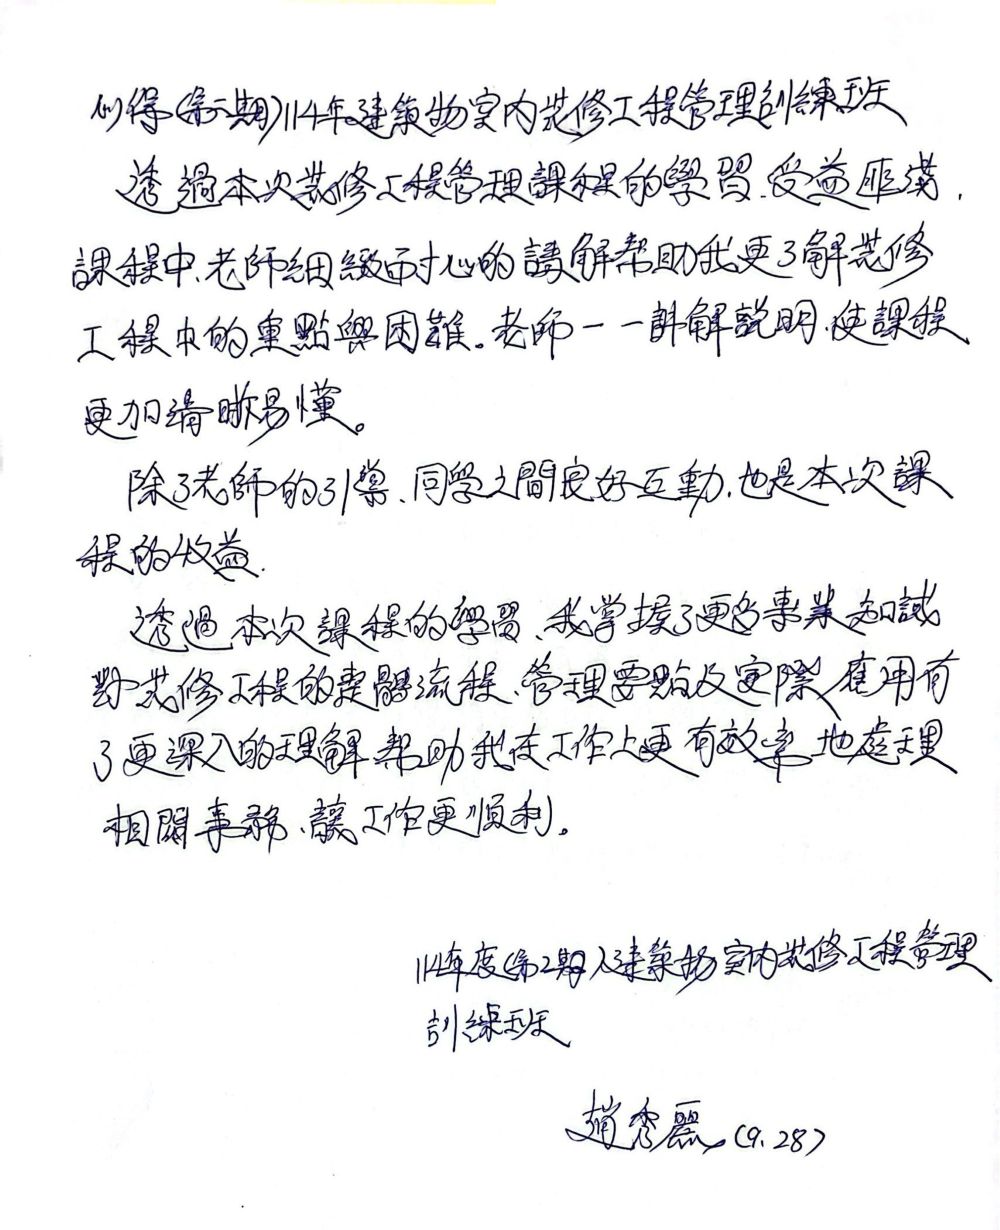 心得(第二期)114年建築物室內裝修工程管理訓練班
透過本次裝修工程管理課程的學習、受益匪淺,
課程中、老師細緻耐心的講解幫助我更了解裝修
工程中的重點與困難。老師一一講解說明、使課程
更加清晰易懂。
除了老師的引導、同學之間良好互動、也是本次課
程的收益.
透過本次課程的學習、我掌握了更多專業知識
對裝修工程的整體流程、管理要點及實際應用有
了更深入的理解、幫助我在工作上更有效率地處理
相關事務、讓工作更順利。
114年度(第2期)建築物室內裝修工程管理
訓練班
趙秀麗(9.28)